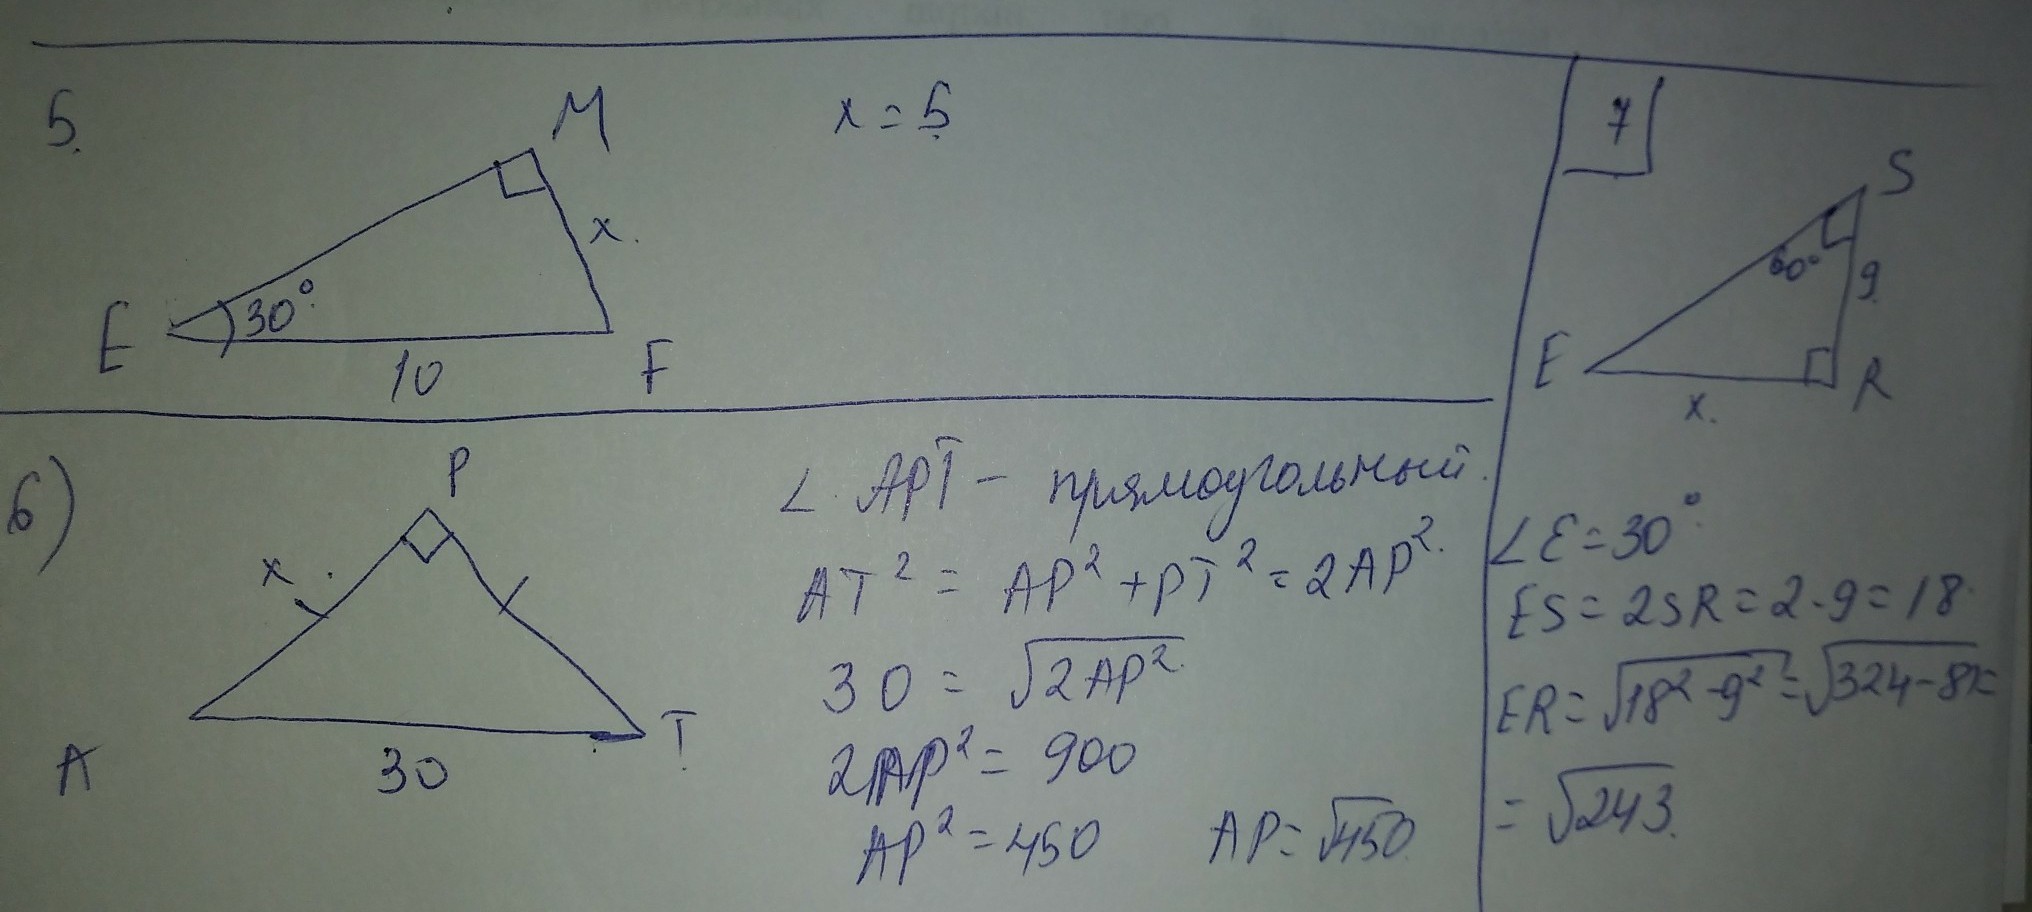 5.
M
x = 5
x.
E
30°
10
F
6)
P
x
A
30
T
∠ APT – прямоугольный.
AT² = AP² + PT² = 2AP².
30 = √2AP²
2AP² = 900
AP² = 450
AP = √450
7
S
60°
9
E
x.
R
∠E = 30°
ES = 2SR = 2·9 = 18
ER = √18² - 9² = √324 - 81 =
= √243